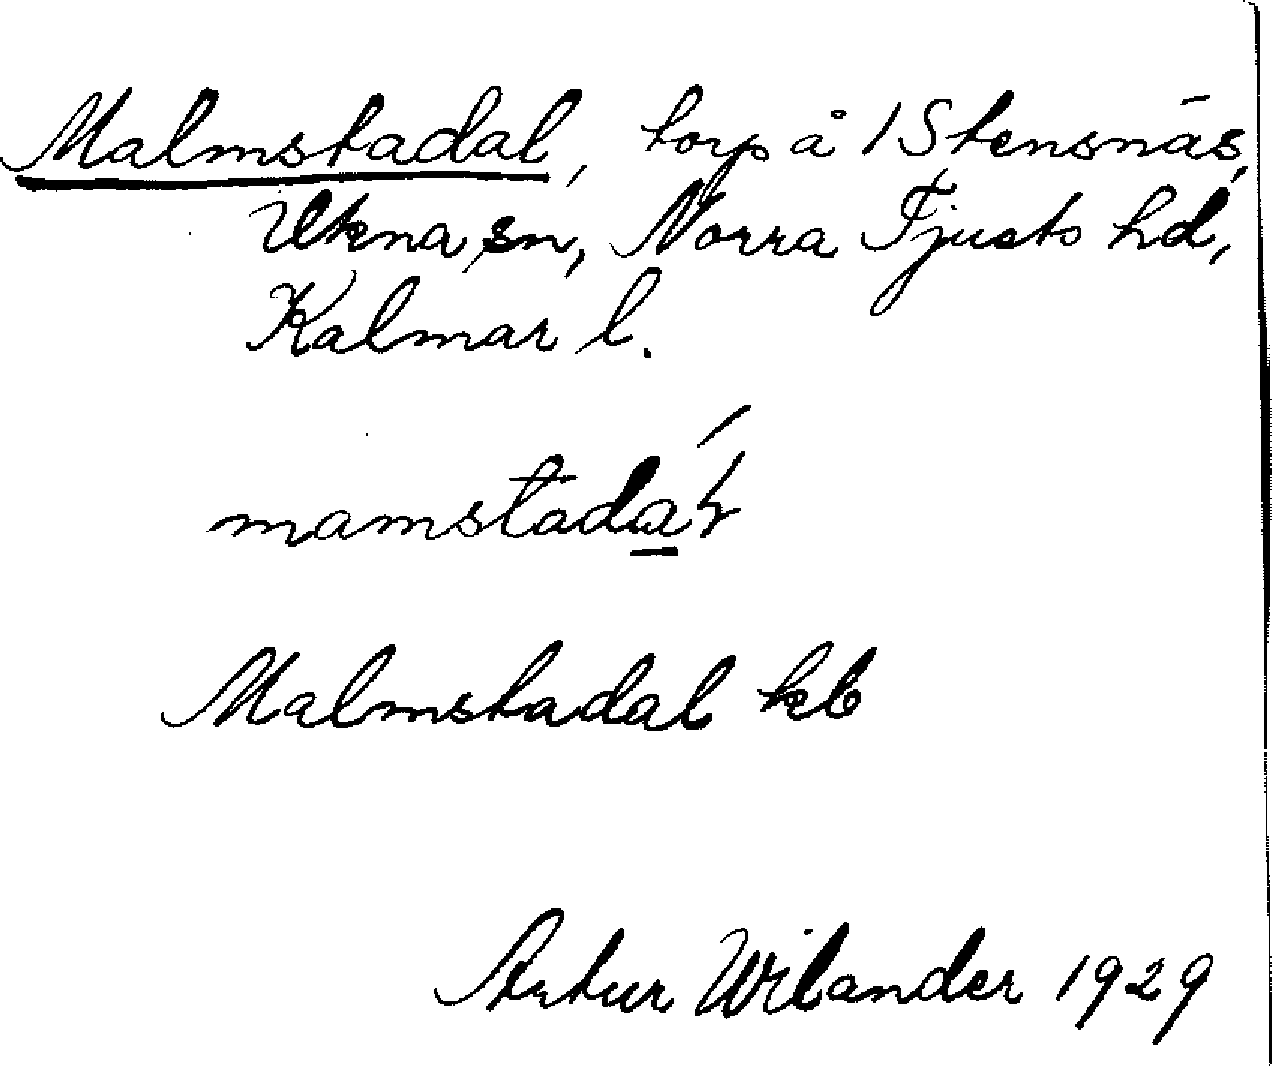 Malmstadal, torp å /Stensnäs,
Ukna sn, Norra Tjusts hd,
Kalmar l.
Malmstadal kb
Artur Wilander 1929